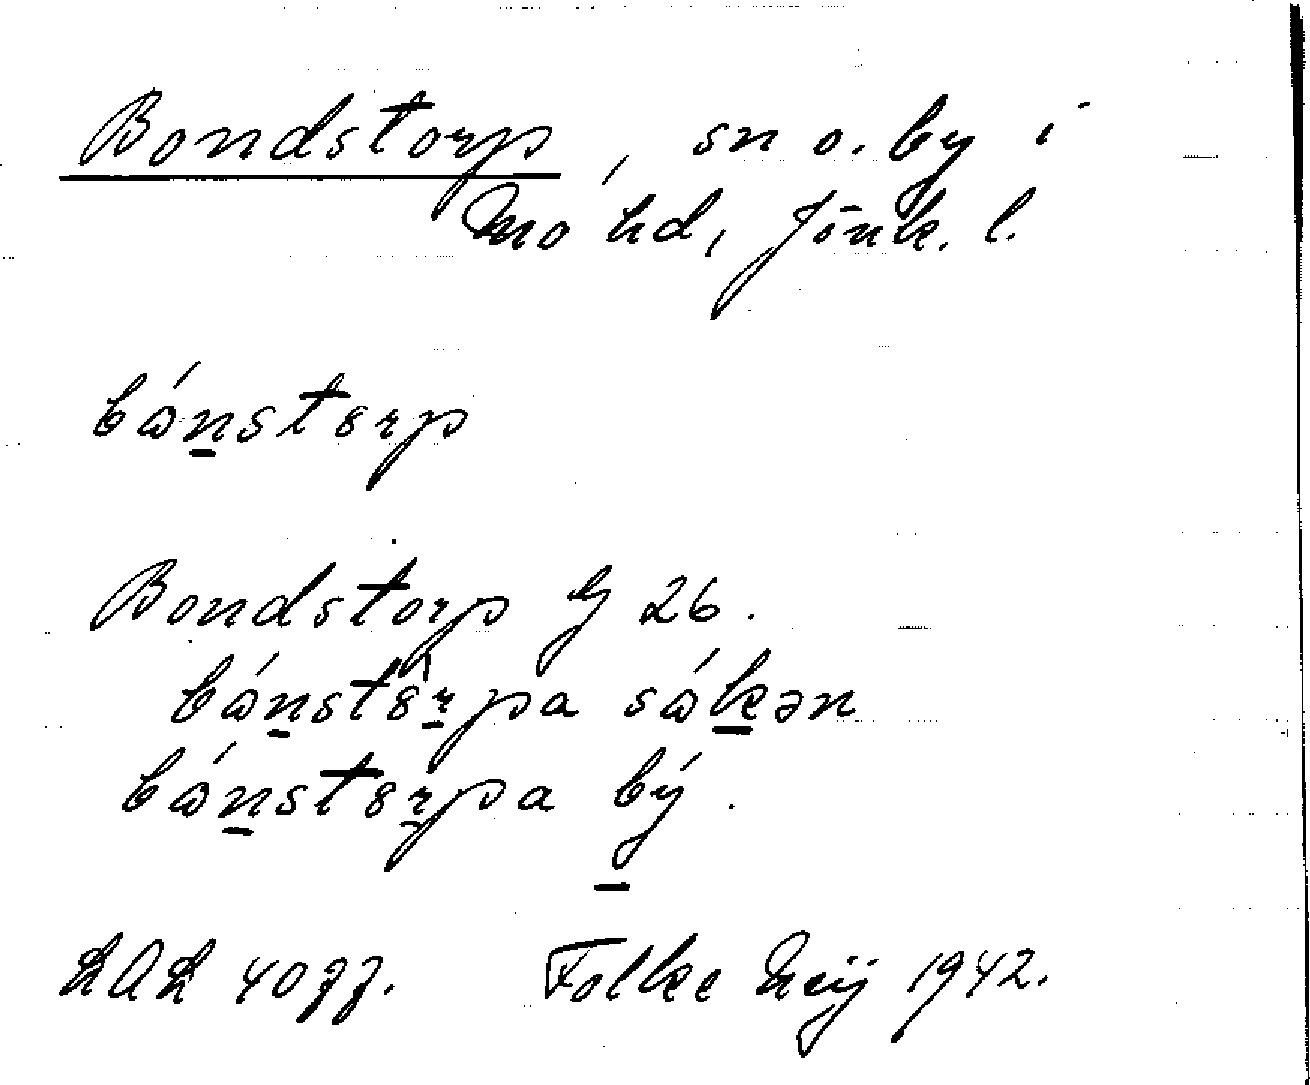 Bondstorp, sn o. by i
Mo hd, Jönk. l.
bónstorp
Bondstorp G 26.
bónstôrpa sókən
bónstorpa bý.
Folke Heij 1942.